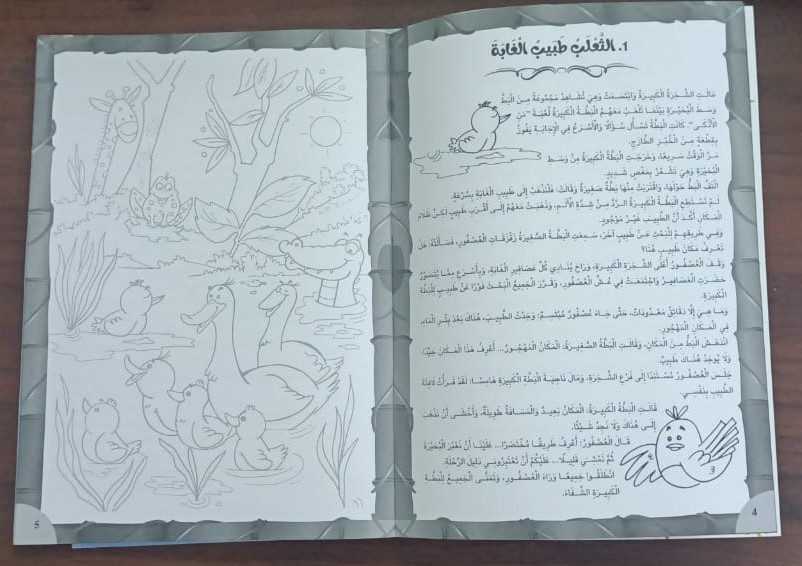 1. الثَّعْلَبُ طَبِيبُ الْغَابَةِ
مَالَتِ الشَّجَرَةُ الْكَبِيرَةُ وَابْتَسَمَتْ وَهِيَ تُشَاهِدُ مَجْمُوعَةً مِنَ الْبَطِّ
وَسَطَ الْبُحَيْرَةِ بَيْنَمَا تَلْعَبُ مَعَهُمُ الْبَطَّةُ الْكَبِيرَةُ لُعْبَةَ "مَنِ
الْأَذْكَى". كَانَتِ الْبَطَّةُ تَسْأَلُ سُؤَالًا وَالْأَسْرَعُ فِي الْإِجَابَةِ يَفُوزُ
بِقِطْعَةٍ مِنَ الْخُبْزِ الطَّازَجِ.
مَرَّ الْوَقْتُ سَرِيعًا، وَخَرَجَتِ الْبَطَّةُ الْكَبِيرَةُ مِنْ وَسَطِ
الْبُحَيْرَةِ وَهِيَ تَشْعُرُ بِمَغَصٍ شَدِيدٍ.
الْتَفَّ الْبَطُّ حَوْلَهَا، وَاقْتَرَبَتْ مِنْهَا بَطَّةٌ صَغِيرَةٌ وَقَالَتْ: فَلْنَذْهَبْ إِلَى طَبِيبِ الْغَابَةِ بِسُرْعَةٍ.
لَمْ تَسْتَطِعِ الْبَطَّةُ الْكَبِيرَةُ الرَّدَّ مِنْ شِدَّةِ الْأَلَمِ، وَذَهَبَتْ مَعَهُمْ إِلَى أَقْرَبِ طَبِيبٍ لَكِنْ
الْمَكَانِ أَكَّدَ أَنَّ الطَّبِيبَ غَيْرُ مَوْجُودٍ.
وَفِي طَرِيقِهِمْ لِلْبَحْثِ عَنْ طَبِيبٍ آخَرَ، سَمِعَتِ الْبَطَّةُ الصَّغِيرَةُ زَقْزَقَاتِ الْعُصْفُورِ، فَسَأَلَتْهُ: هَلْ
تَعْرِفُ مَكَانَ طَبِيبٍ هُنَا؟
وَقَفَ الْعُصْفُورُ أَعْلَى الشَّجَرَةِ الْكَبِيرَةِ، وَرَاحَ يُنَادِي كُلَّ عَصَافِيرِ الْغَابَةِ، وَبِأَسْرَعِ مِمَّا يُتَصَوَّرُ
حَضَرَتِ الْعَصَافِيرُ وَاجْتَمَعَتْ فِي عُشِّ الْعُصْفُورِ، وَقَرَّرَ الْجَمِيعُ الْبَحْثَ فَوْرًا عَنْ طَبِيبٍ لِلْبَطَّةِ
الْكَبِيرَةِ.
وَمَا هِيَ إِلَّا دَقَائِقُ مَعْدُودَاتٌ، حَتَّى جَاءَ عُصْفُورٌ مُبْتَسِمٌ: وَجَدْتُ الطَّبِيبَ، هُنَاكَ بَعْدَ بِئْرِ الْمَاءِ،
فِي الْمَكَانِ الْمَهْجُورِ.
انْدَهَشَ الْبَطُّ مِنَ الْمَكَانِ، وَقَالَتِ الْبَطَّةُ الصَّغِيرَةُ: الْمَكَانُ الْمَهْجُورُ... أَعْرِفُ هَذَا الْمَكَانَ جَيِّدًا،
وَلَا يُوجَدُ هُنَاكَ طَبِيبٌ.
جَلَسَ الْعُصْفُورُ مُسْتَنِدًا إِلَى فَرْعِ الشَّجَرَةِ، وَمَالَ نَاحِيَةَ الْبَطَّةِ الْكَبِيرَةِ هَامِسًا: لَقَدْ قَرَأْتُ لَافِتَةَ
الطَّبِيبِ بِنَفْسِي.
قَالَتِ الْبَطَّةُ الْكَبِيرَةُ: الْمَكَانُ بَعِيدٌ وَالْمَسَافَةُ طَوِيلَةٌ، وَأَخْشَى أَنْ نَذْهَبَ
إِلَى هُنَاكَ وَلَا نَجِدَ شَيْئًا.
قَالَ الْعُصْفُورُ: أَعْرِفُ طَرِيقًا مُخْتَصَرًا... عَلَيْنَا أَنْ نَعْبُرَ الْبُحَيْرَةَ
ثُمَّ نَمْشِيَ قَلِيلًا... عَلَيْكُمْ أَنْ تَعْتَبِرُونِي دَلِيلَ الرِّحْلَةِ.
انْطَلَقُوا جَمِيعًا وَرَاءَ الْعُصْفُورِ، وَتَمَنَّى الْجَمِيعُ لِلْبَطَّةِ
الْكَبِيرَةِ الشِّفَاءَ.
4
5